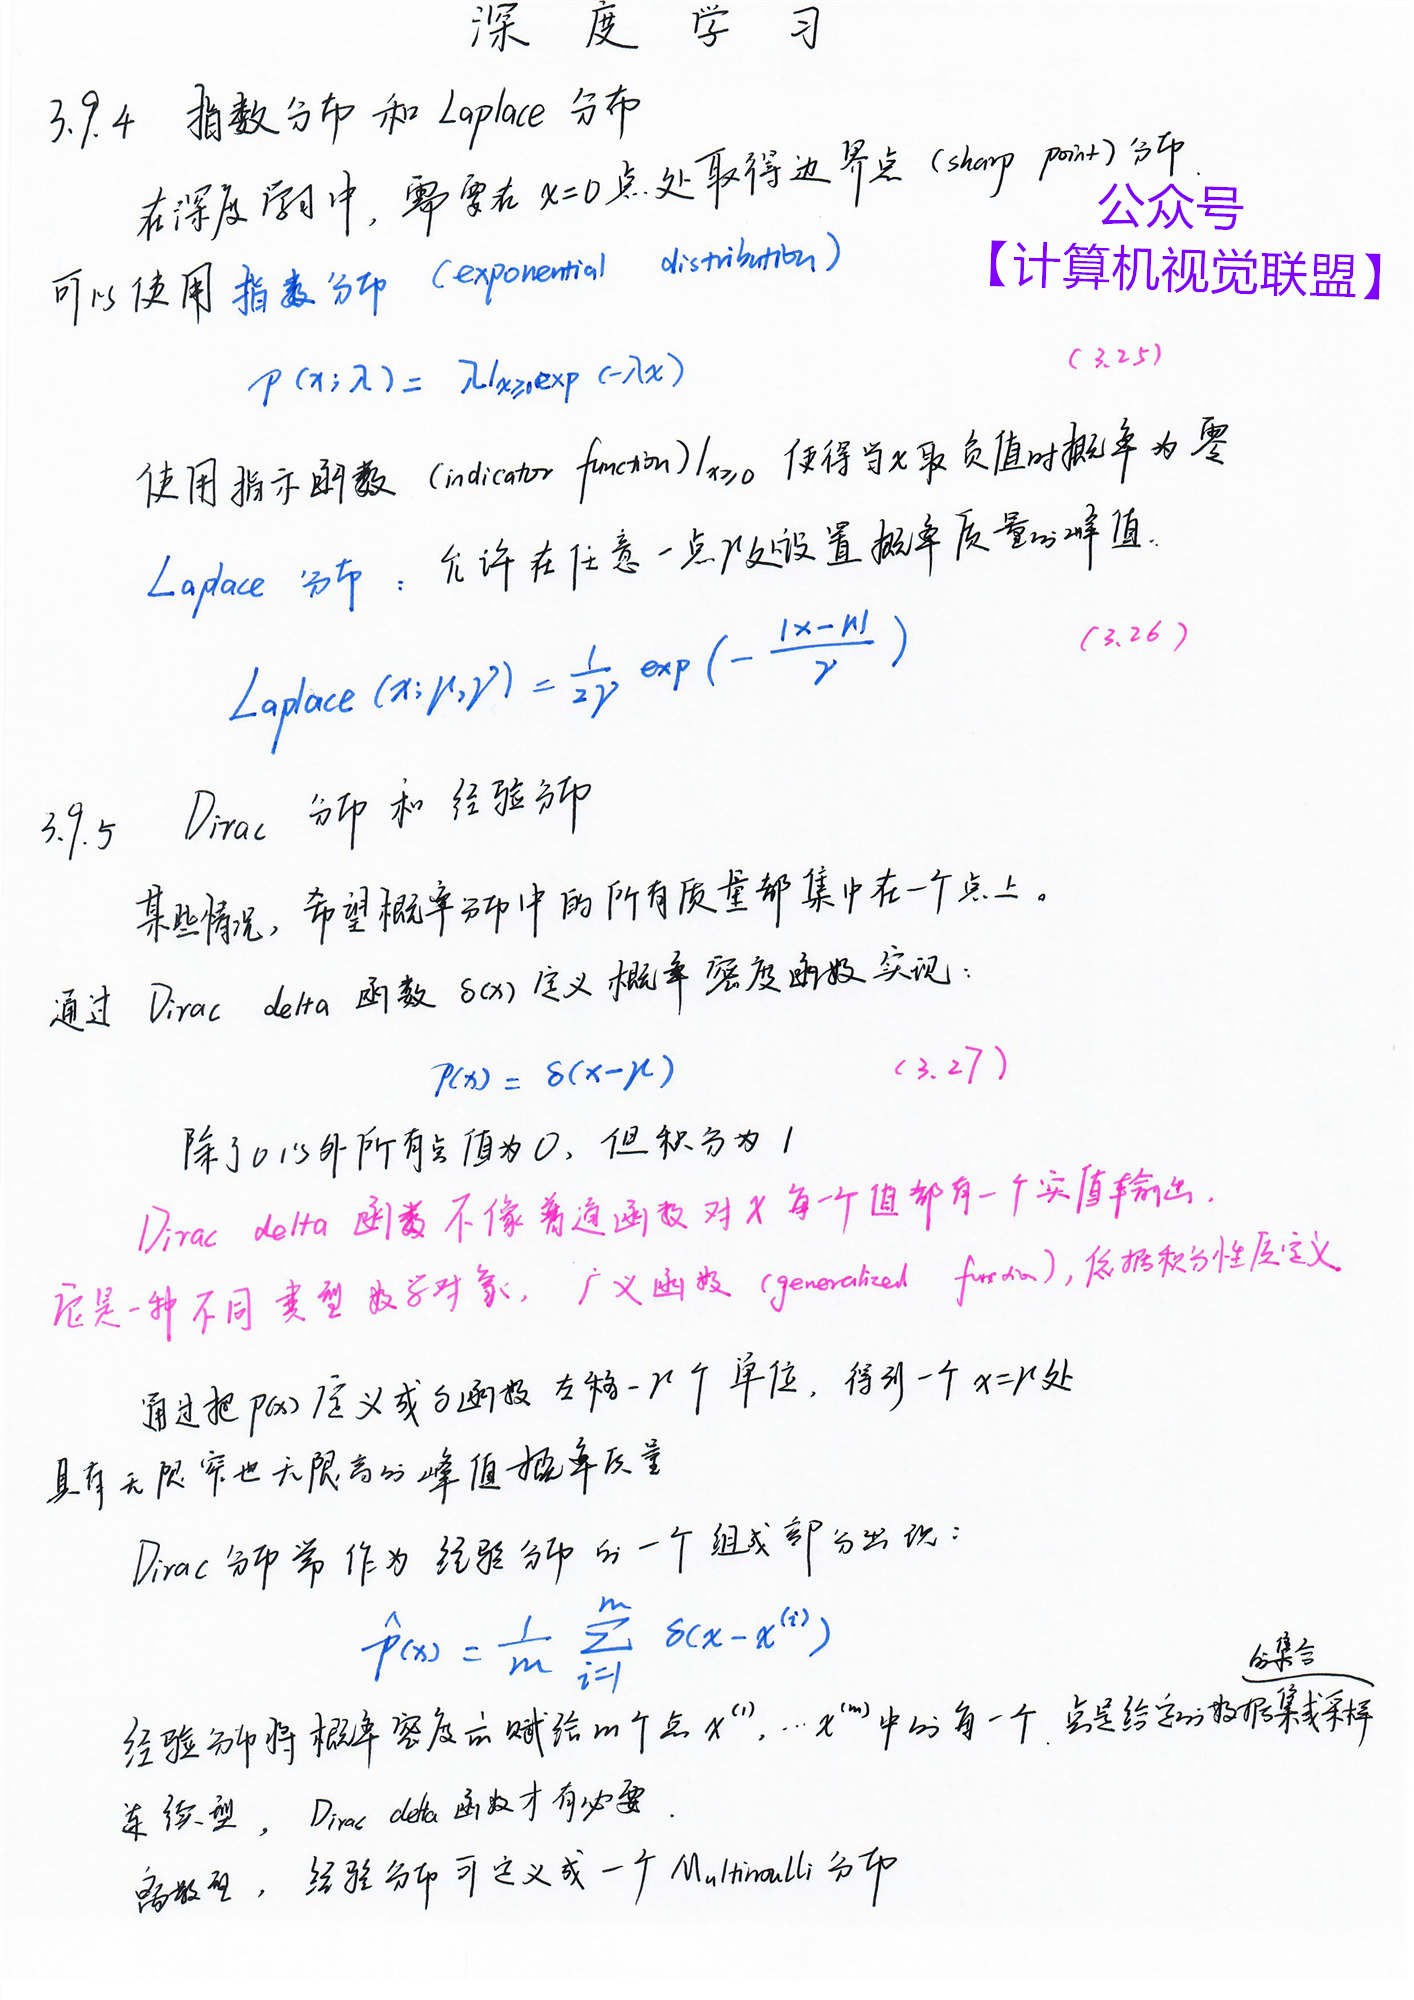 深度学习
3.9.4 指数分布和Laplace分布
在深度学习中，需要在x=0点处取得边界点(sharp point)分布.
公众号
可以使用指数分布(exponential distribution)
【计算机视觉联盟】
p(x;λ)= λ1ₓ≥₀exp(-λx) (3.25)
使用指示函数(indicator function)1ₓ≥₀ 使得当x取负值时概率为零
Laplace分布：允许在任意一点μ处设置概率质量的峰值.
Laplace(x;μ,γ)= 1/2γ exp(- |x-μ|/γ) (3.26)
3.9.5 Dirac分布和经验分布
某些情况，希望概率分布中的所有质量都集中在一个点上。
通过Dirac delta函数δ(x)定义概率密度函数实现：
p(x)= δ(x-μ) (3.27)
除了0以外所有点值为0，但积分为1
Dirac delta函数不像普通函数对x每一个值都有一个实值输出.
它是一种不同类型数学对象，广义函数(generalized function)，依据积分性质定义
通过把p(x)定义成δ函数左移-μ个单位，得到一个x=μ处
具有无限窄也无限高的峰值概率质量
Dirac分布常作为经验分布的一个组成部分出现：
p̂(x) = 1/m Σᵢ₌₁ᵐ δ(x-x⁽ⁱ⁾)
的集合
经验分布将概率密度1/m赋给m个点x⁽¹⁾,…x⁽ᵐ⁾中的每一个.点是给定的数据集或采样
连续型，Dirac delta函数才有必要.
离散型，经验分布可定义成一个Multinoulli分布